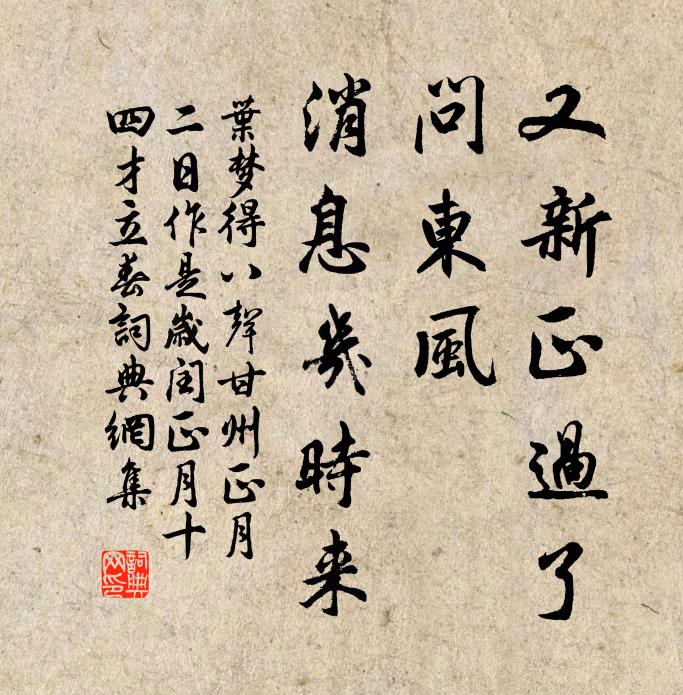 又新正過了
問東風
消息幾時来
葉梦得八聲甘州正月
二日作是歲閏正月十
四才立春詞典網集
詞典
网印